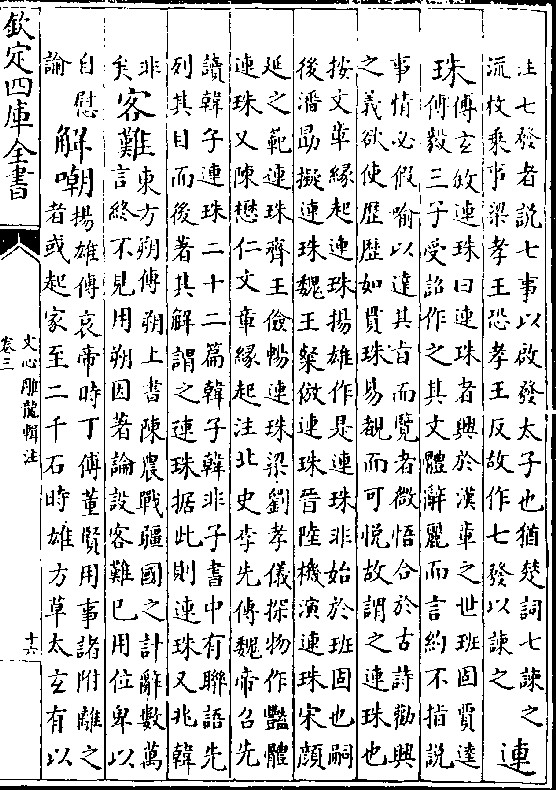 注七發者說七事以啟發太子也猶楚詞七諫之
流枚乘事梁孝王恐孝王反故作七發以諫之
連
珠
傅玄敘連珠曰連珠者興於漢章之世班固賈逵
傅毅三子受詔作之其文體辭麗而言約不指說
事情必假喻以達其旨而覽者微悟合於古詩勸興
之義欲使歷歷如貫珠易覩而可悅故謂之連珠也
按文章緣起連珠揚雄作是連珠非始於班固也嗣
後潘勗擬連珠魏王粲倣連珠晉陸機演連珠宋顏
延之範連珠齊王儉暢連珠梁劉孝儀探物作豔體
連珠又陳懋仁文章緣起注北史李先傳魏帝召先
讀韓子連珠二十二篇韓子韓非子書中有聯語先
列其目而後著其解謂之連珠据此則連珠又兆韓
非
矣
客難
東方朔傳朔上書陳農戰疆國之計辭數萬
言終不見用朔因著論設客難已用位卑以
自慰
論
解嘲
揚雄傳哀帝時丁傅董賢用事諸附離之
者或起家至二千石時雄方草太玄有以
欽定四庫全書
文心雕龍輯注
卷三
十六